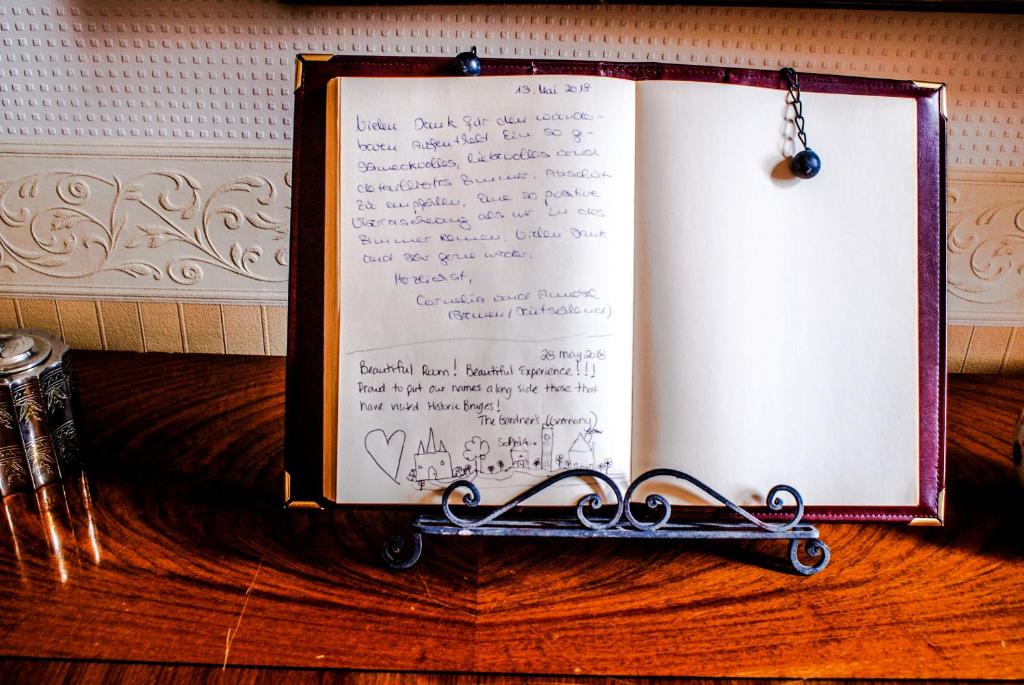 19. Mai 2018
Vielen Dank für den wunder-
baren Aufenthalt. Ein so ge-
schmackvolles, liebevolles und
detailliertes Zimmer. Absolut
zu empfehlen. Eine so positive
Überraschung als wir in das
Zimmer kamen. Vielen Dank
und sehr gerne wieder.
Herzlichst,
Cornelia und
(Bremen/Deutschland)
28 may 2018
Beautiful Room! Beautiful Experience!!!
Proud to put our names along side those that
have visited Historic Bruges!
The Gardner's (Germany)
SOPHIA..